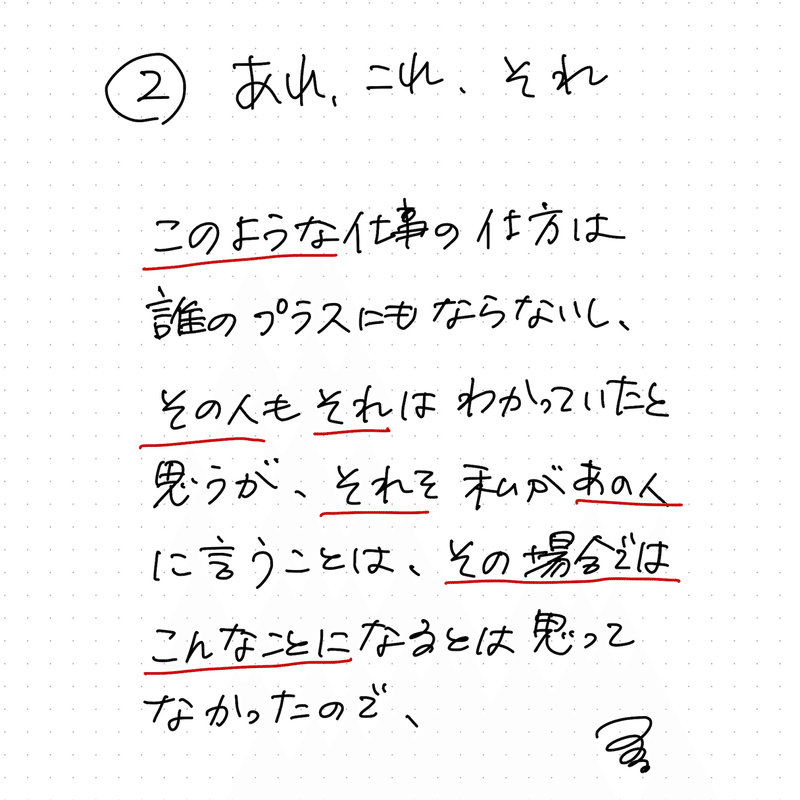 ② あれ、これ、それ
このような仕事の仕方は
誰のプラスにもならないし、
その人もそれはわかっていたと
思うが、それを私があの人
に言うことは、その場合では
こんなことになるとは思って
なかったので、